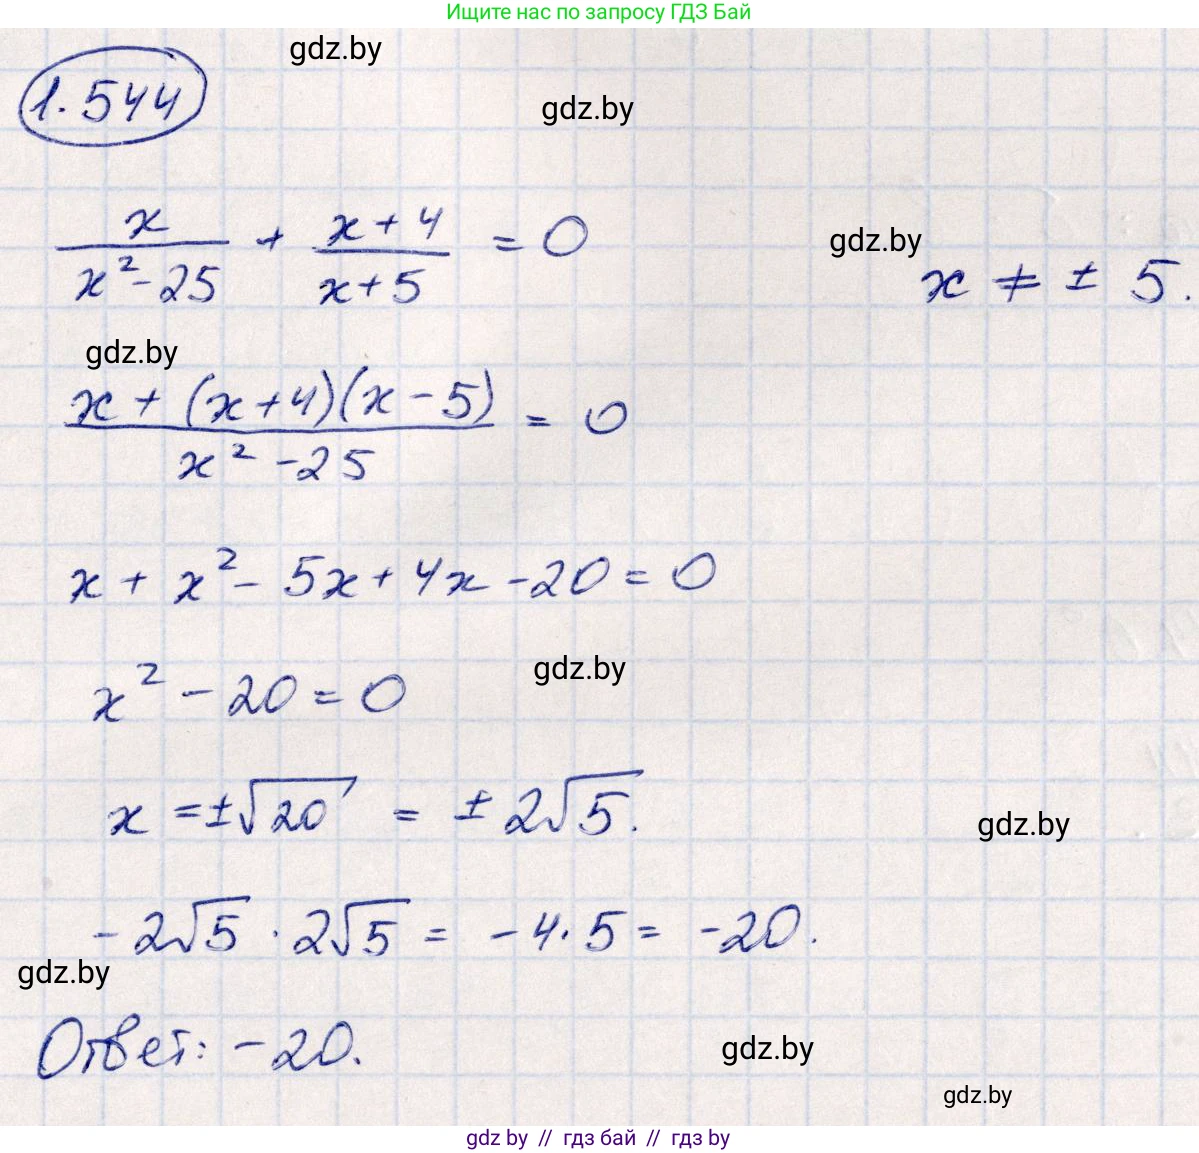 Ищите нас по запросу ГДЗ Бай
gdz.by
1.544
gdz.by
x/(x²-25) + (x+4)/(x+5) = 0
gdz.by
x ≠ ± 5.
gdz.by
(x + (x+4)(x-5))/(x²-25) = 0
x + x² - 5x + 4x - 20 = 0
gdz.by
x² - 20 = 0
x = ±√20 = ± 2√5.
gdz.by
- 2√5 · 2√5 = - 4 · 5 = -20.
gdz.by
Ответ: -20.
gdz.by
gdz.by
gdz by // гдз бай // гдз by